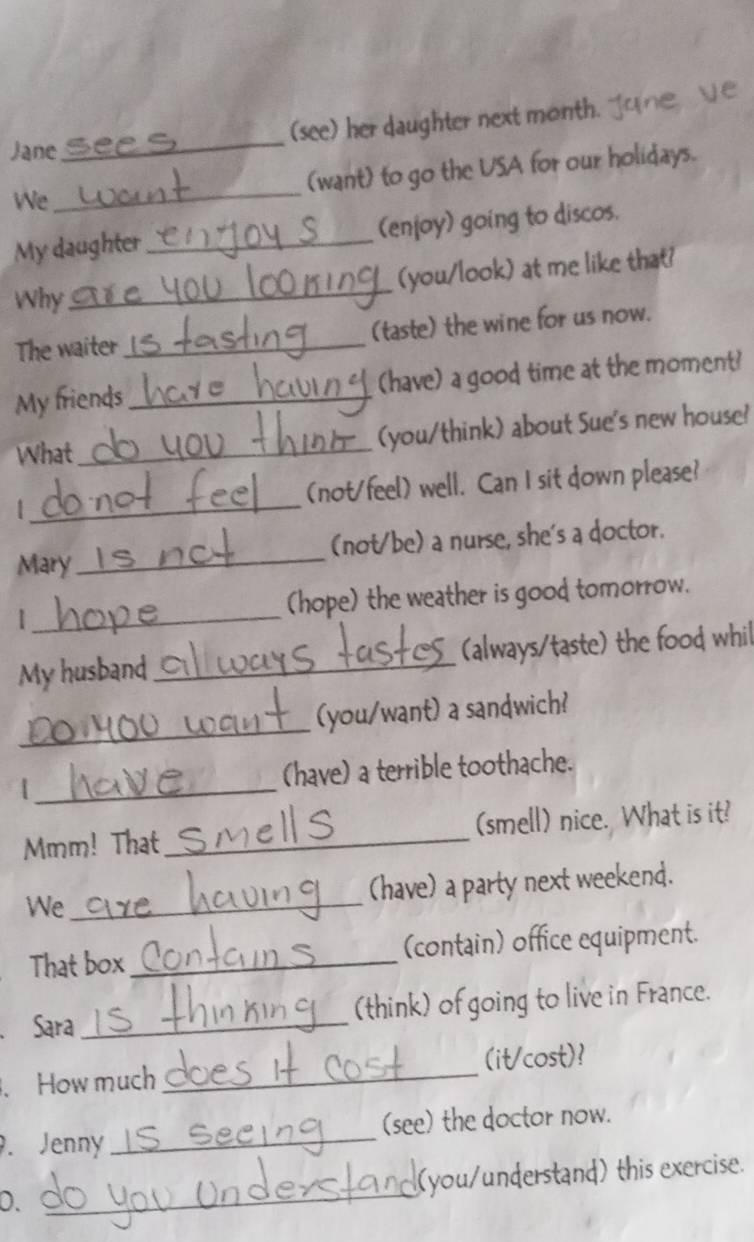 Jane sees (see) her daughter next month. Jane ve
We want (want) to go the USA for our holidays.
My daughter enjoys (enjoy) going to discos.
Why are you looking (you/look) at me like that?
The waiter is tasting (taste) the wine for us now.
My friends have having (have) a good time at the moment!
What do you think (you/think) about Sue's new house?
I do not feel (not/feel) well. Can I sit down please?
Mary is not (not/be) a nurse, she's a doctor.
I hope (hope) the weather is good tomorrow.
My husband allways tastes (always/taste) the food whil
Do you want (you/want) a sandwich?
I have (have) a terrible toothache.
Mmm! That smells (smell) nice. What is it?
We are having (have) a party next weekend.
That box contains (contain) office equipment.
. Sara is thinking (think) of going to live in France.
. How much does it cost (it/cost)?
. Jenny is seeing (see) the doctor now.
0. do you understand (you/understand) this exercise.